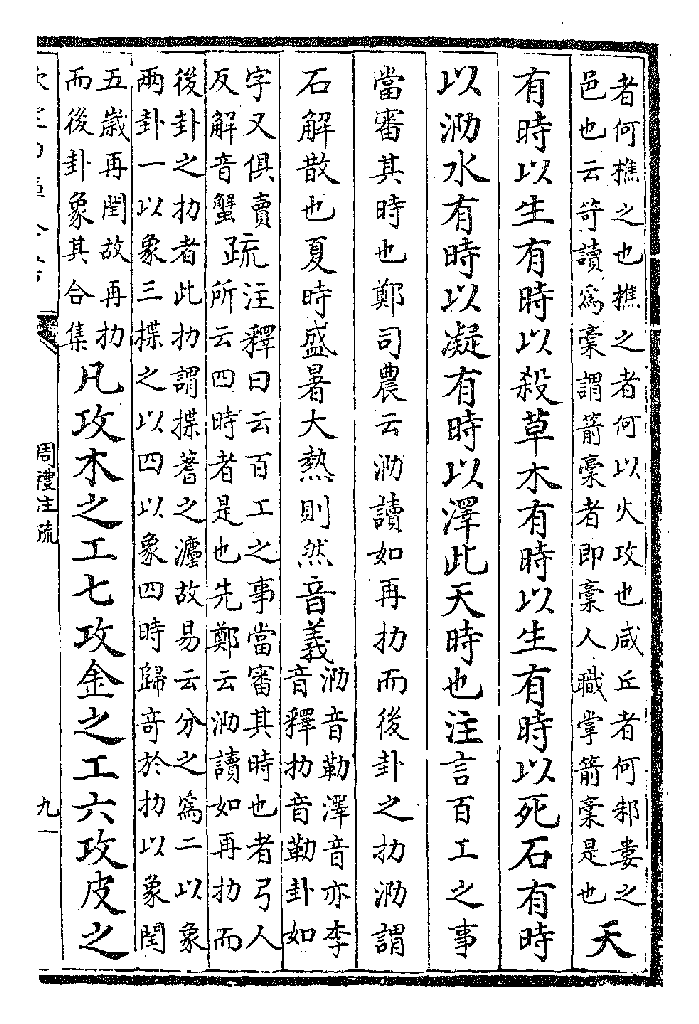 者何撨之也撨之者何以火攻也咸丘者何邾婁之
邑也云笴讀爲稾謂箭稾者即稾人職掌箭稾是也
天
有時以生有時以殺草木有時以生有時以死石有時
以泐水有時以凝有時以澤此天時也注言百工之事
當審其時也鄭司農云泐讀如再扐而後卦之扐泐謂
石解散也夏時盛暑大熱則然音義
泐音勒澤音亦李
音釋扐音勒卦如
字又俱賣
反解音蟹
疏
注釋曰云百工之事當審其時也者弓人
所云四時者是也先鄭云泐讀如再扐而
後卦之扐者此扐謂揲蓍之灋故易云分之爲二以象
兩卦一以象三揲之以四以象四時歸竒於扐以象閏
五歲再閏故再扐
而後卦象其合集
凡攻木之工七攻金之工六攻皮之
周禮注疏
九